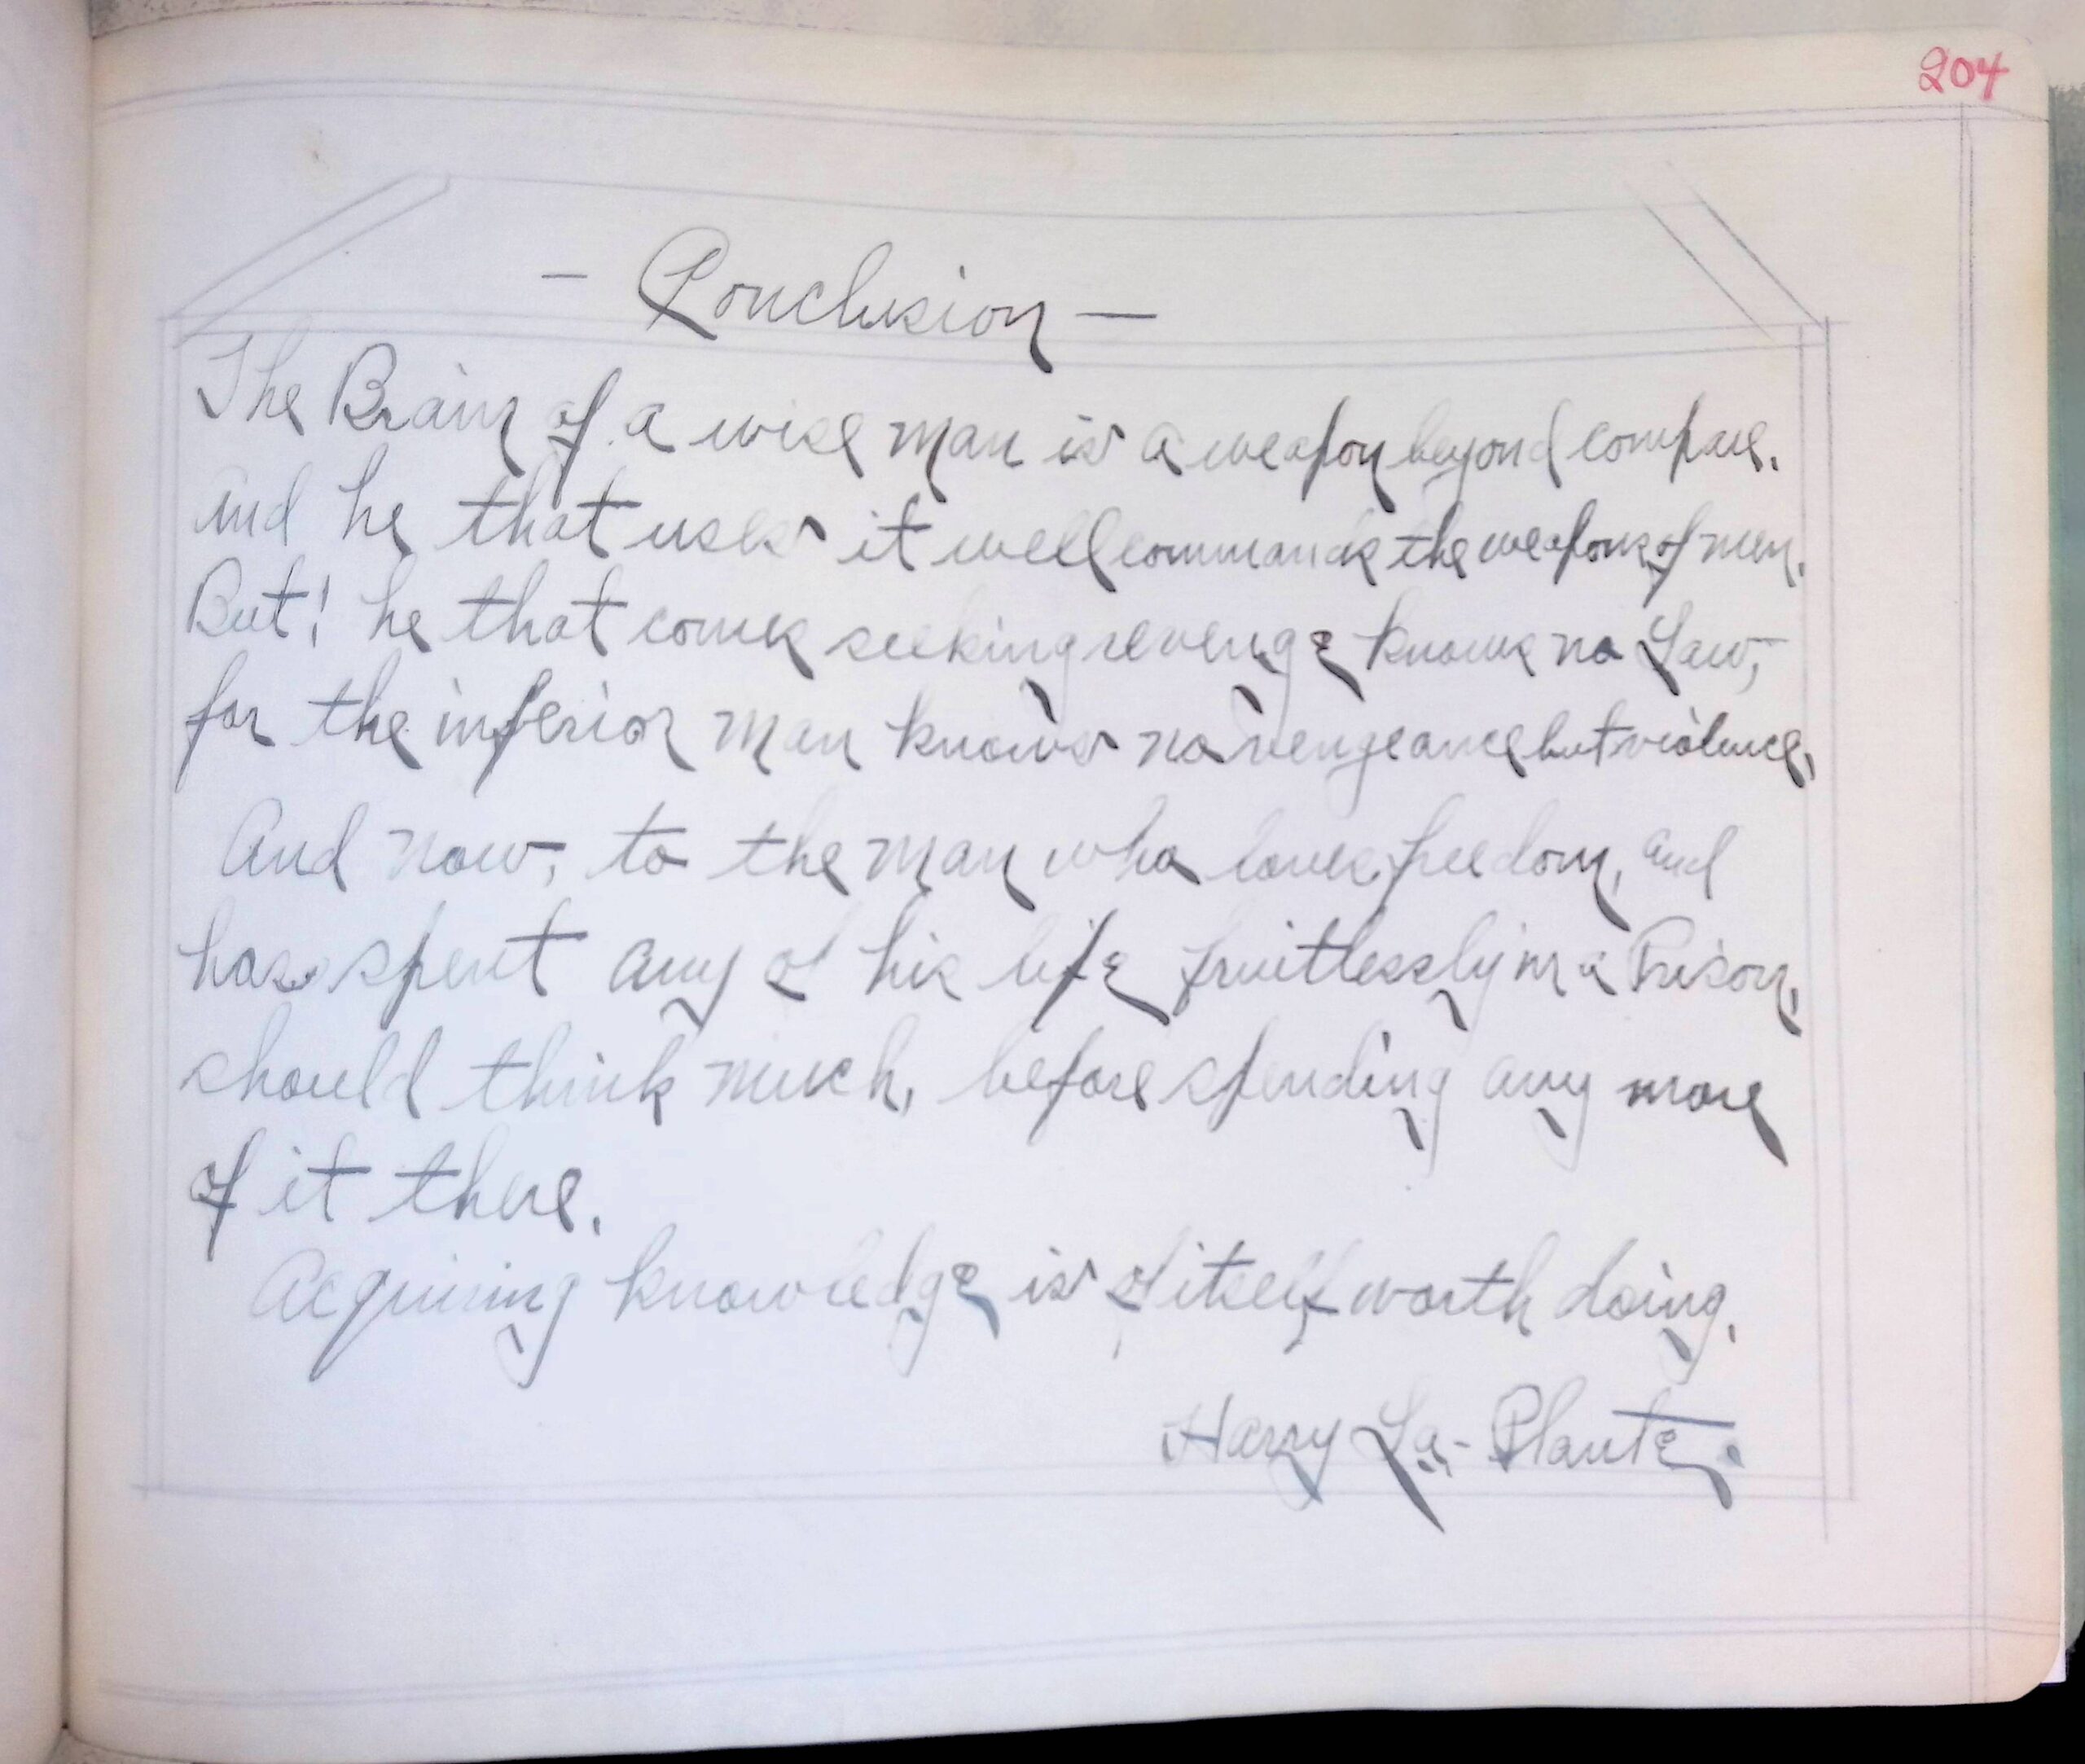 204
- Conclusion -
The Brain of a wise man is a weapon beyond compare.
and he that uses it well commands the weapons of men.
But! he that comes seeking revenge knows no Law,
for the inferior man knows no vengeance but violence.
And now, to the man who loves freedom, and
has spent any of his life fruitlessly in a Prison,
should think much, before spending any more
of it there.
Acquiring knowledge is of itself worth doing.
Harry La-Plante.